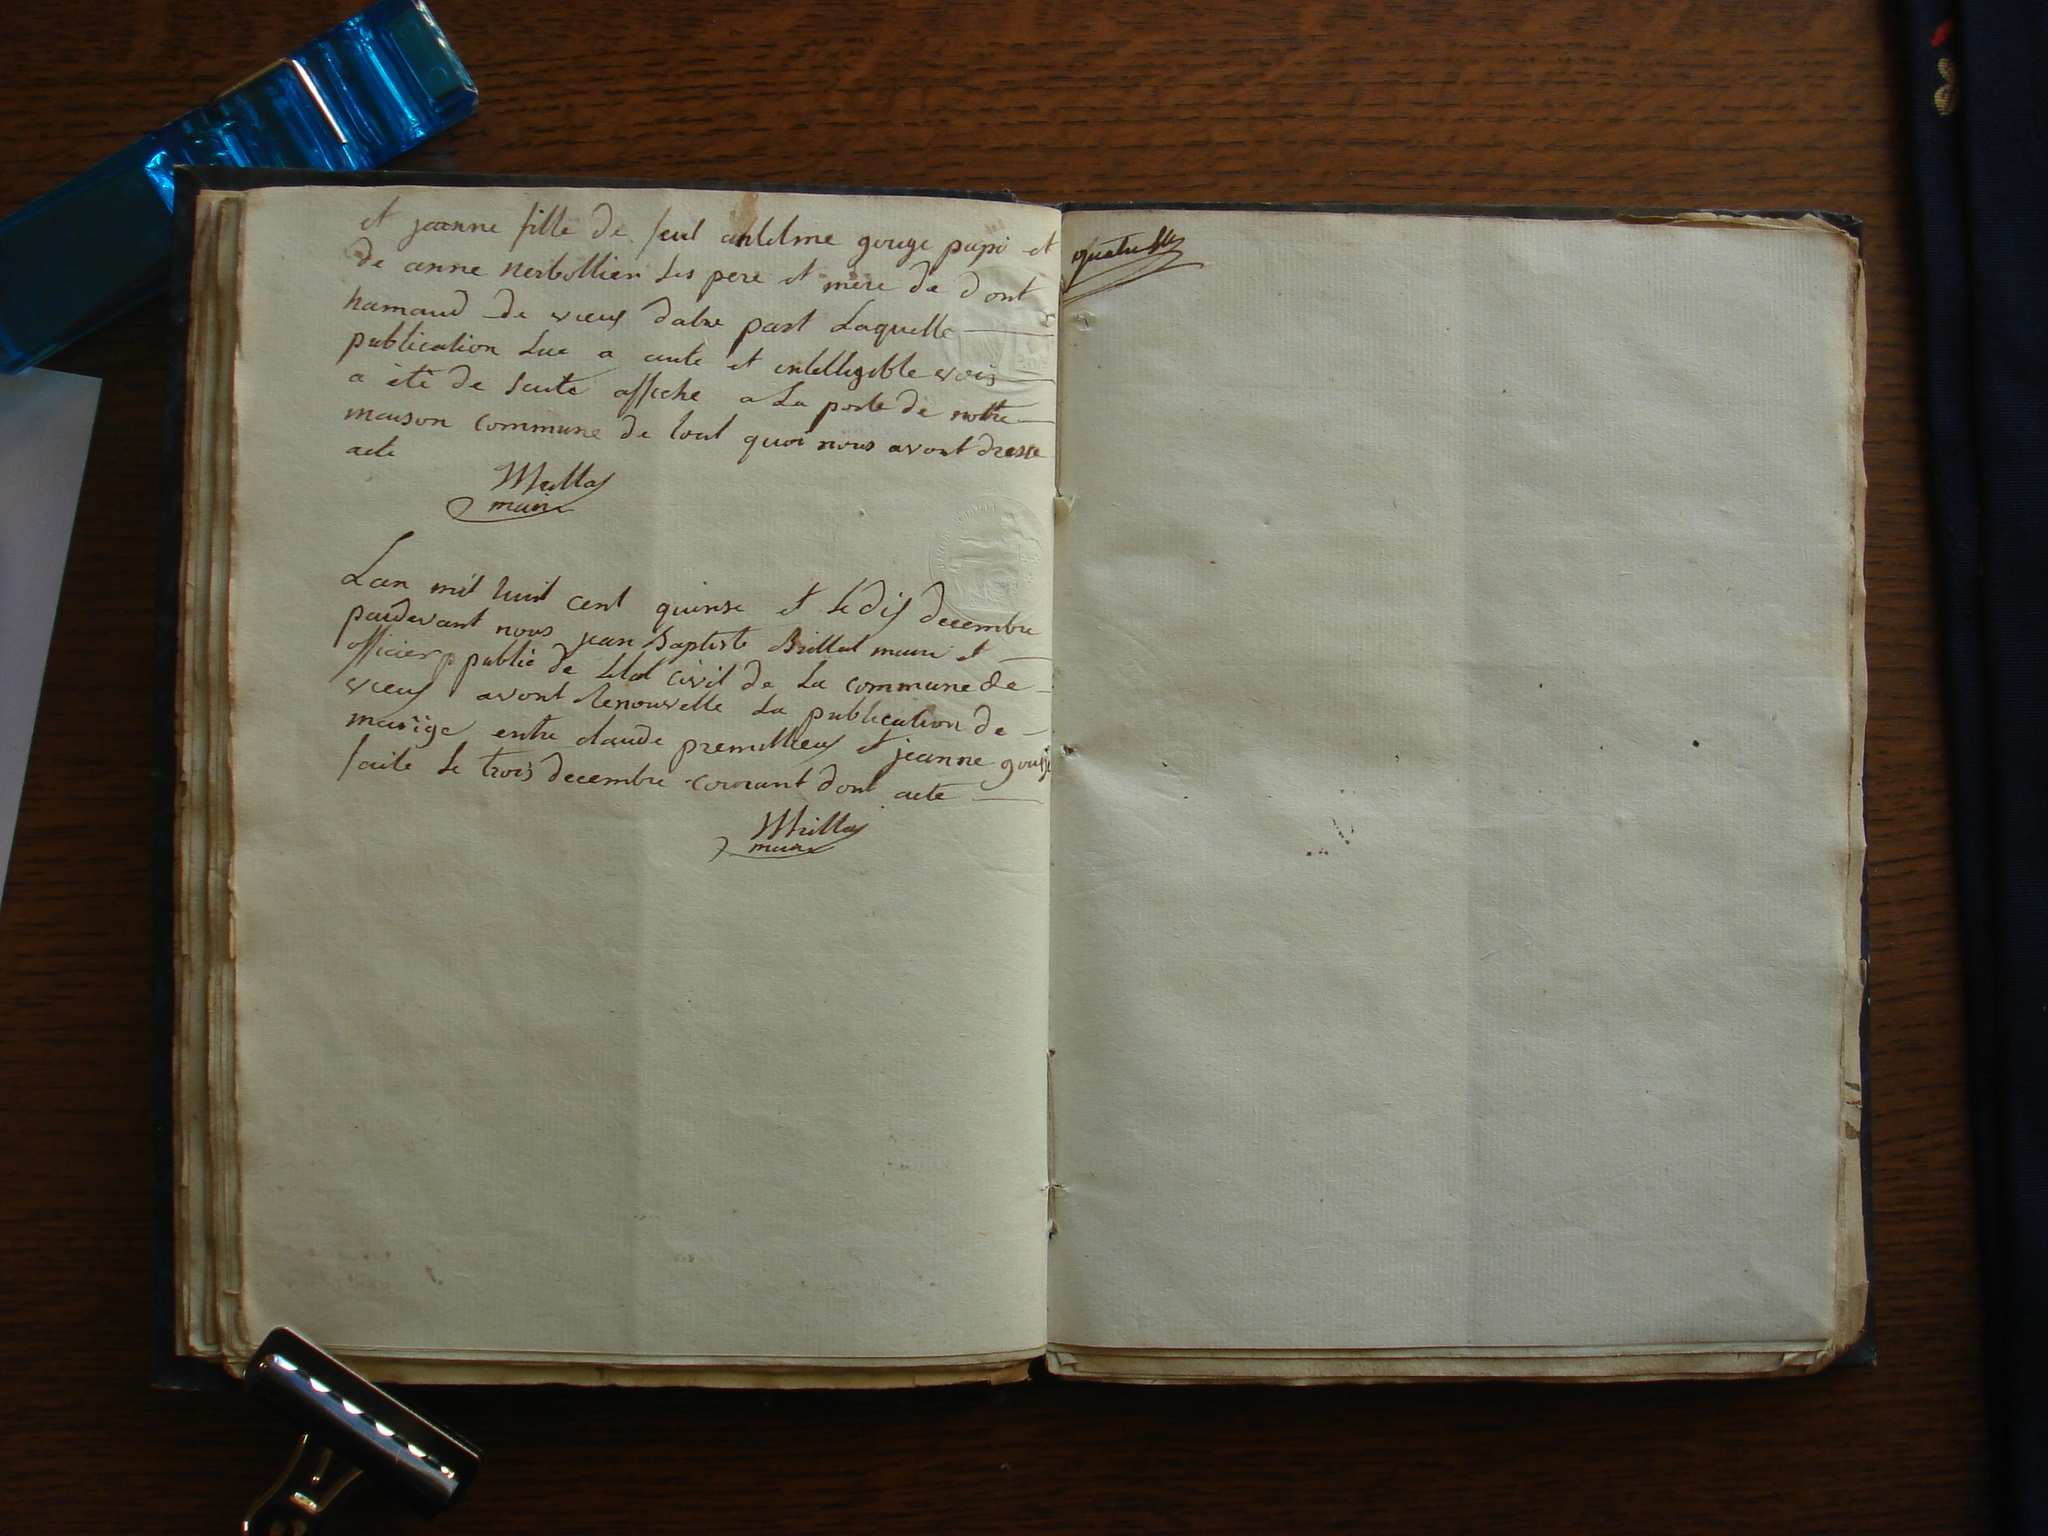 et jeanne fille de feut anlelme gouge papi et
de anne nerbollier les pere et mere de dont
hamaud de vieux dabre part Laquelle
publication lue a aute et intelligible voix
a été de suite affiche a La porte de nottre
maison commune de tout quoi nous avont dresse
acte
maire
Lan mil huit cent quinse et le dix decembre
pardevant nous jean Baptiste Brillat maire et
officier public de letat civil de La commune de
vieux avont Renouvelle La publication de
mariige entre claude premillieux et jeanne gouge
faite le trois decembre courant dont acte
maire